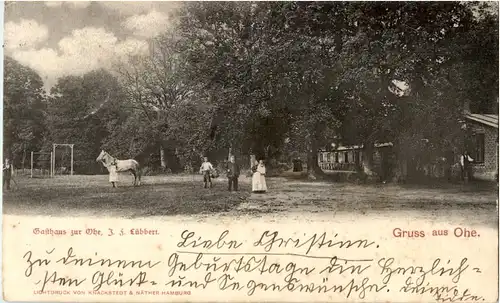 Gasthaus zur Ohe, J. F. Lübbert.
Gruss aus Ohe.
Liebe Christine.
Zu deinem Geburtstage die Herzlich-
sten Glück- und Segenswünsche. Deine
LICHTDRUCK VON KNACKSTEDT & NÄTHER-HAMBURG